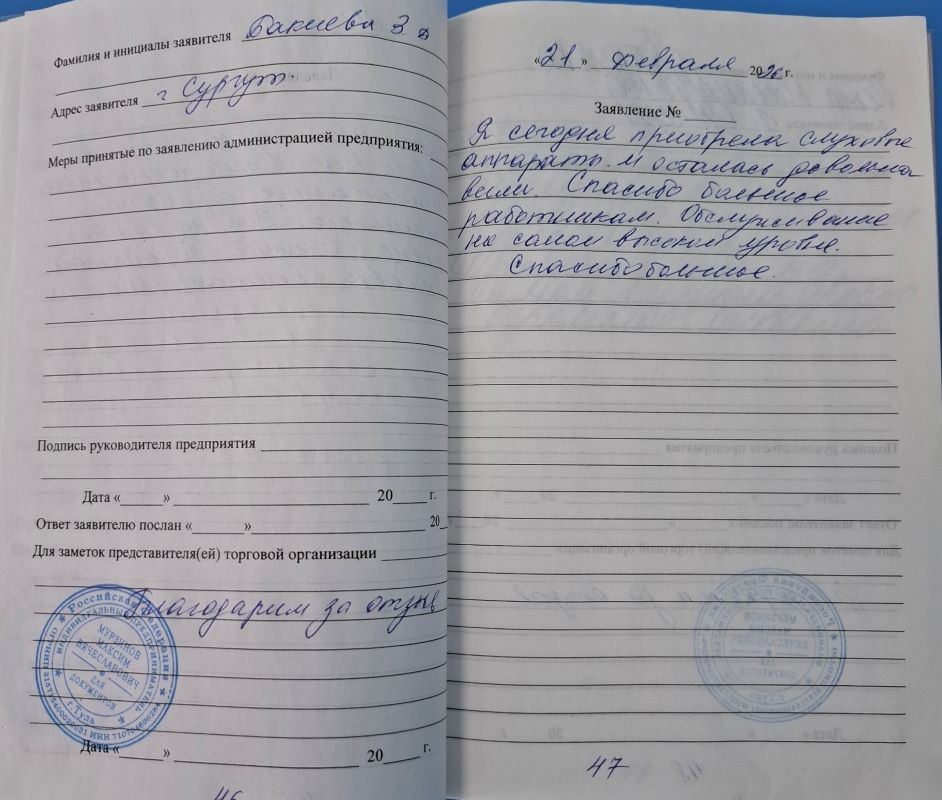 Фамилия и инициалы заявителя Бакиева З
Адрес заявителя г Сургут.
Меры принятые по заявлению администрацией предприятия:
Подпись руководителя предприятия
Дата «____» ____ 20____ г.
Ответ заявителю послан «____» ____ 20
Для заметок представителя(ей) торговой организации
Благодарим за отзыв
Российская Федерация
ИНДИВИДУАЛЬНЫЙ ПРЕДПРИНИМАТЕЛЬ
МУРЗИНОВ
МАКСИМ
ВЯЧЕСЛАВОВИЧ
ДЛЯ
ДОКУМЕНТОВ
г.Тула
Дата «____» ____ 20____ г.
46
«21» февраля 2026 г.
Заявление № ____
Я сегодня приобрела слуховые
аппараты. и осталась довольна
всем. Спасибо большое
работникам. Обслуживание
на самом высоком уровне.
Спасибо большое.
47